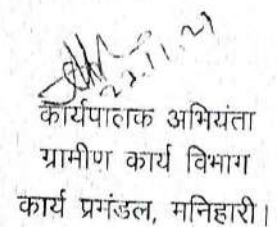 22.11.21
कार्यपालक अभियंता
ग्रामीण कार्य विभाग
कार्य प्रमंडल, मनिहारी।